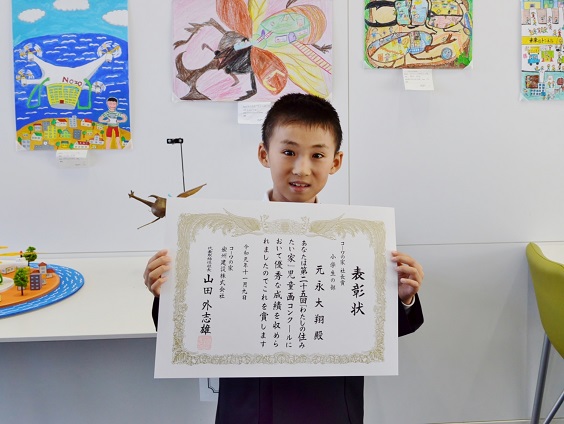 表彰状
コーワの家 社長賞
小学生の部
元永大翔殿
あなたは第二十五回「わたしの住み
たい家」児童画コンクールに
おいて優秀な成績を収めら
れましたのでこれを賞します
令和元年十一月九日
コーワの家
代表取締役社長 山田外志雄